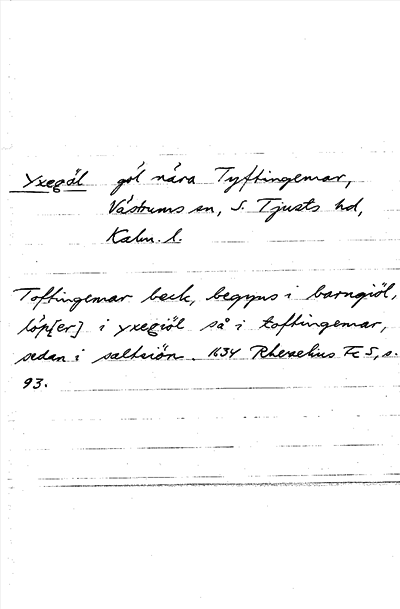 Yxegöl göl nära Tyftingemar,
Västrums sn, S. Tjusts hd,
Kalm. l.
Toftingemar beck, begyns i barngiöl,
löp[er] i yxegiöl så i toftingemar,
sedan i saltsiön. 1634 Rhezelius Fc 5, s.
93.